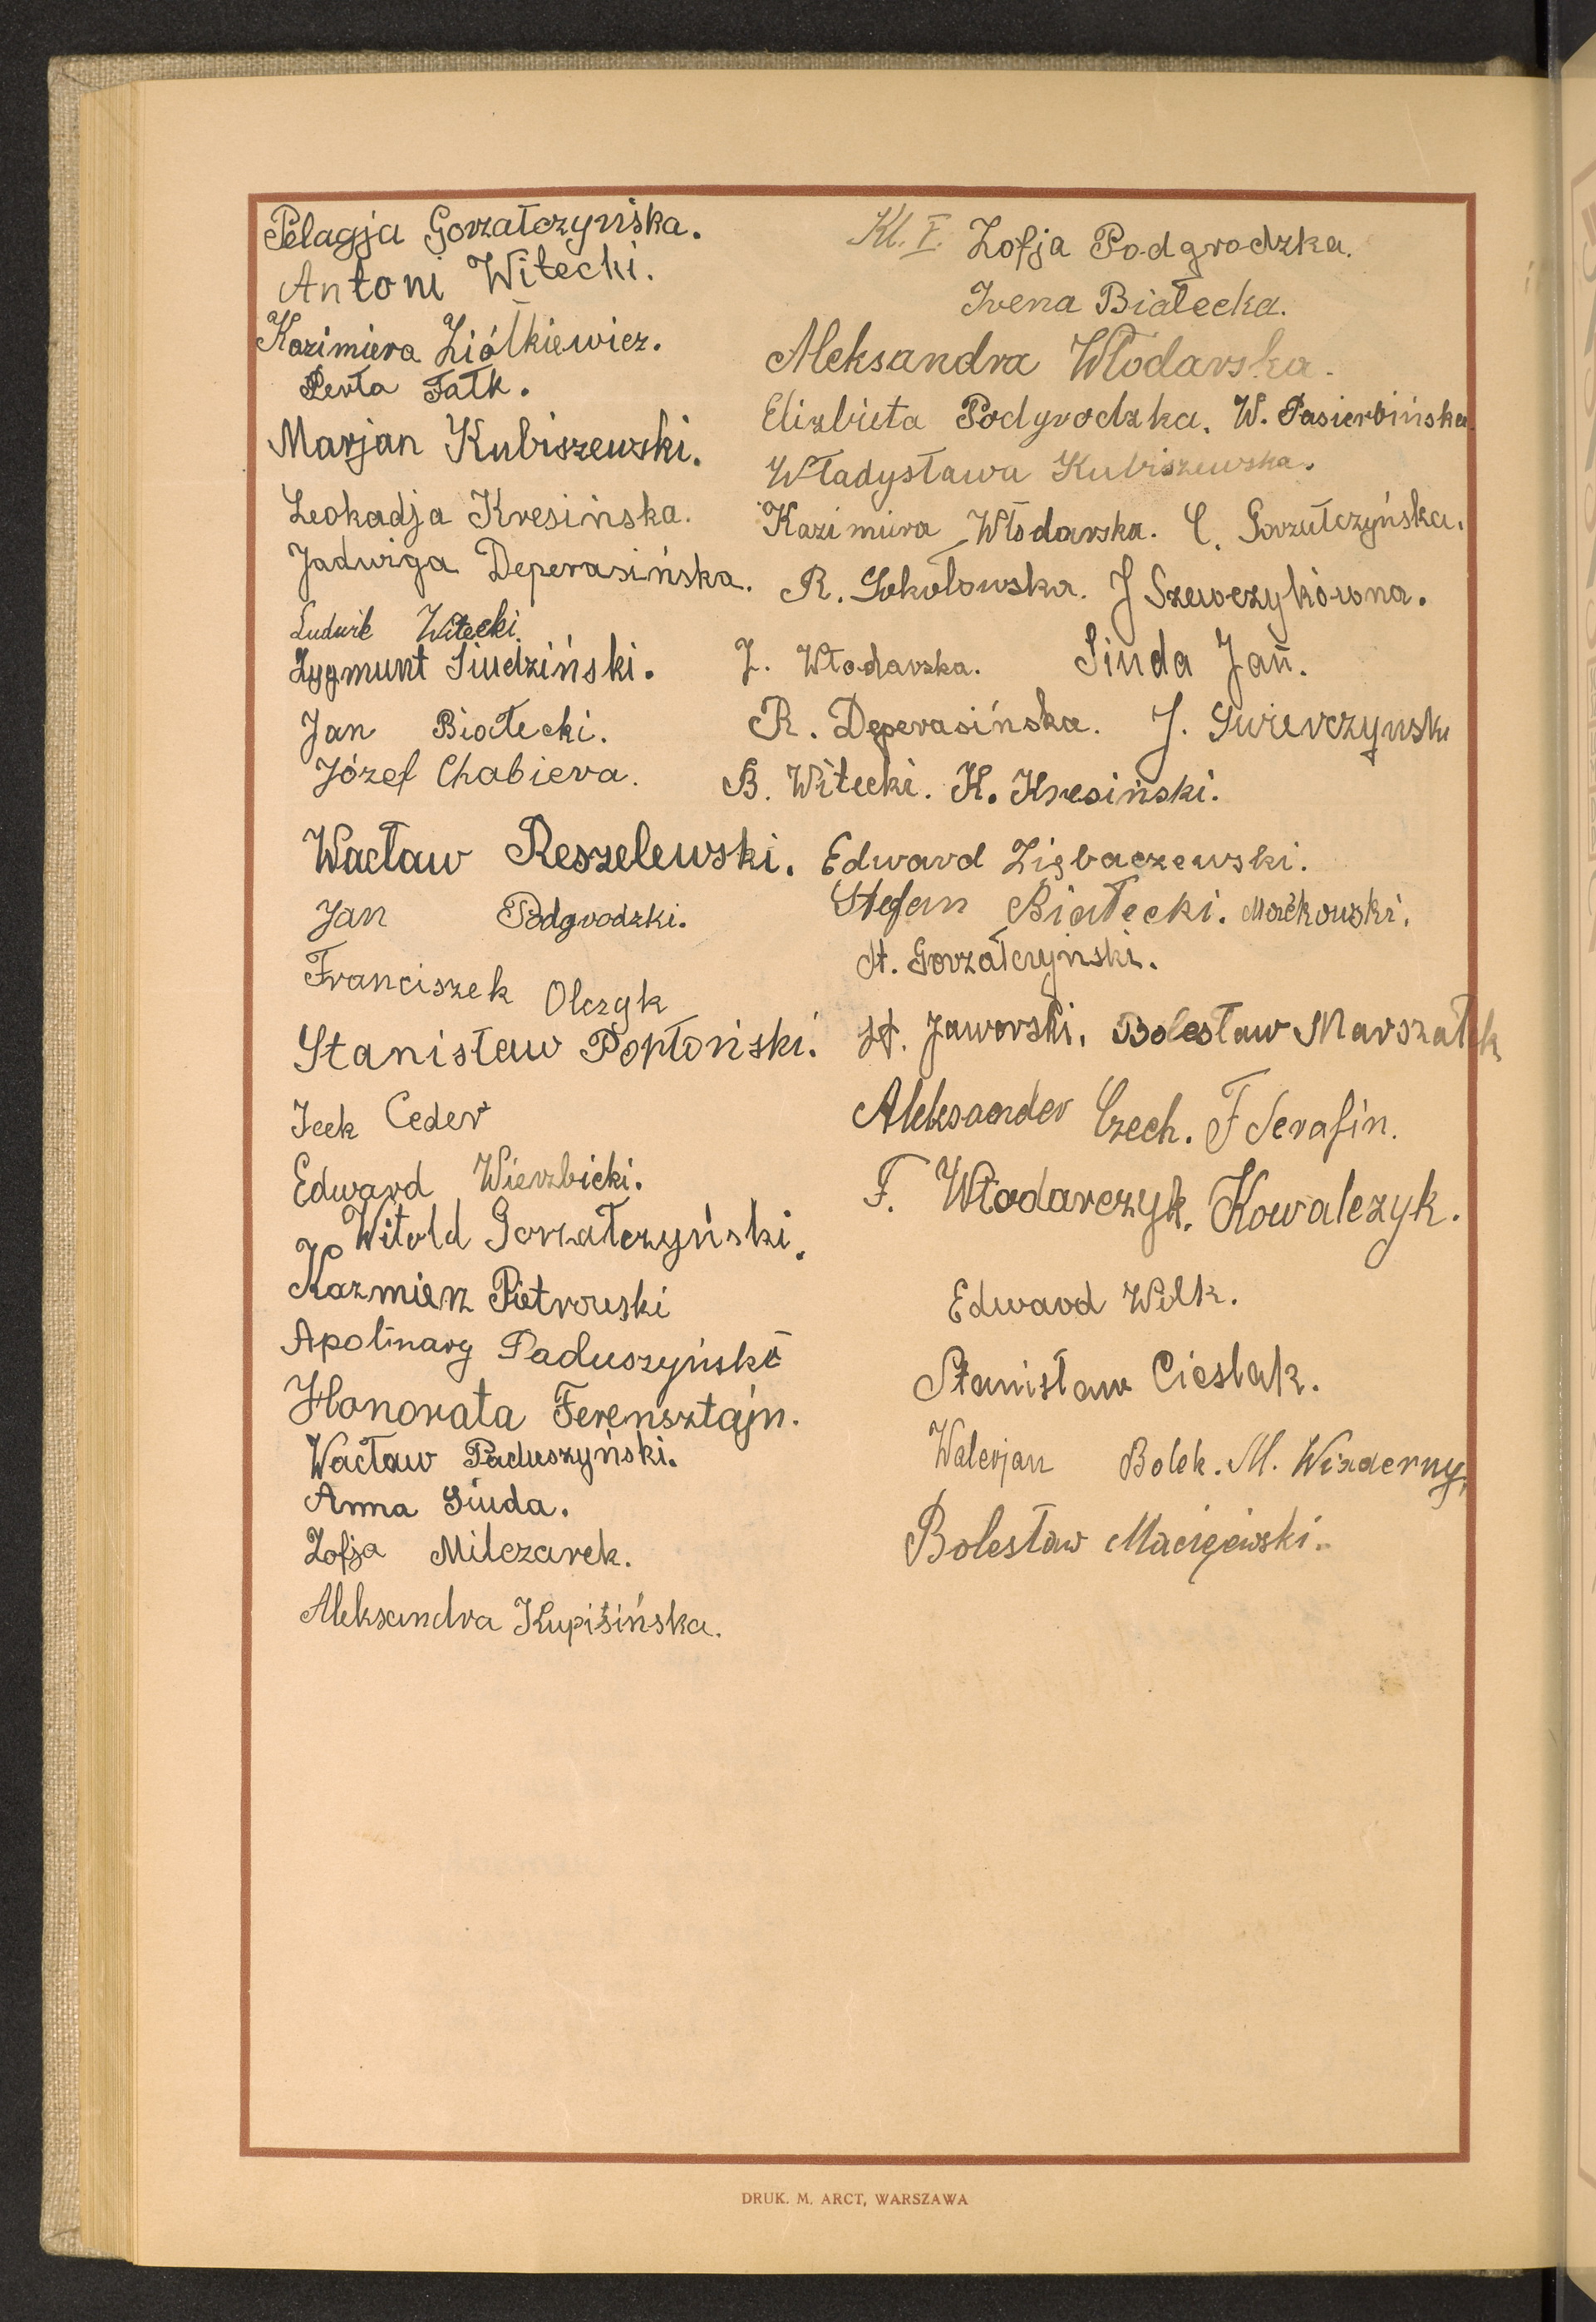 Pelagja Gorzałczyńska.
Antoni Witecki.
Kazimiera Ziółkiewicz.
Perła Fałk.
Marjan Kubiszewski.
Leokadja Kresińska.
Jadwiga Deperasińska.
Ludwik Witecki.
Zygmunt Siudziński.
Jan Białecki.
Józef Chabiera.
Wacław Reszelewski.
Jan Podgrodzki.
Franciszek Olczyk
Stanisław Popłoński.
Icek Ceder
Edward Wierzbicki.
Witold Gorzałczyński.
Kazmierz Pietrowski
Apolinary Paduszyński
Honorata Ferensztajn.
Wacław Paduszyński.
Anna Siuda.
Zofja Milczarek.
Aleksandra Kupisińska.
Kl. V. Zofja Podgrodzka.
Irena Białecka.
Aleksandra Włodarska.
Elizbieta Podgrodzka. W. Pasierbińska
Władysława Kubiszewska.
Kazimiera Włodarska. C. Gorzałczyńska.
R. Sokołowska. J Szewczykówna.
Z. Włodarska. Siuda Jan.
R. Deperasińska. J. Swierczyńsk
B. Witecki. K. Kresiński.
Edward Ziębaczewski.
Stefan Białecki.
St. Gorzałczyński.
St. Jaworski. Bolesław Marszałek
Aleksander Czech. F Serafin.
F. Włodarczyk. Kowalczyk.
Edward Wilk.
Stanisław Cieslak.
Walerjan Bolek. M. Wizderny.
Bolesław Maciejewski.
DRUK. M. ARCT, WARSZAWA